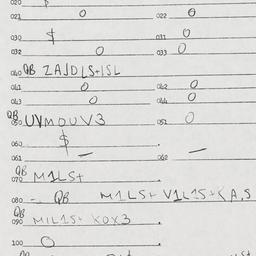 020 $
021 0 022 0
030 $ 031 0
032 0 033 0
040 QB ZAJDLS+ISL
041 0 042 0
043 0 044 0
QB
050 UVMOUV3 051 0
060 $
061 — 062 —
QB
070 M1LS+
080 - QB M1LS+ V1L1S+KA,S
QB
090 MIL1S+ KOX3
100 0